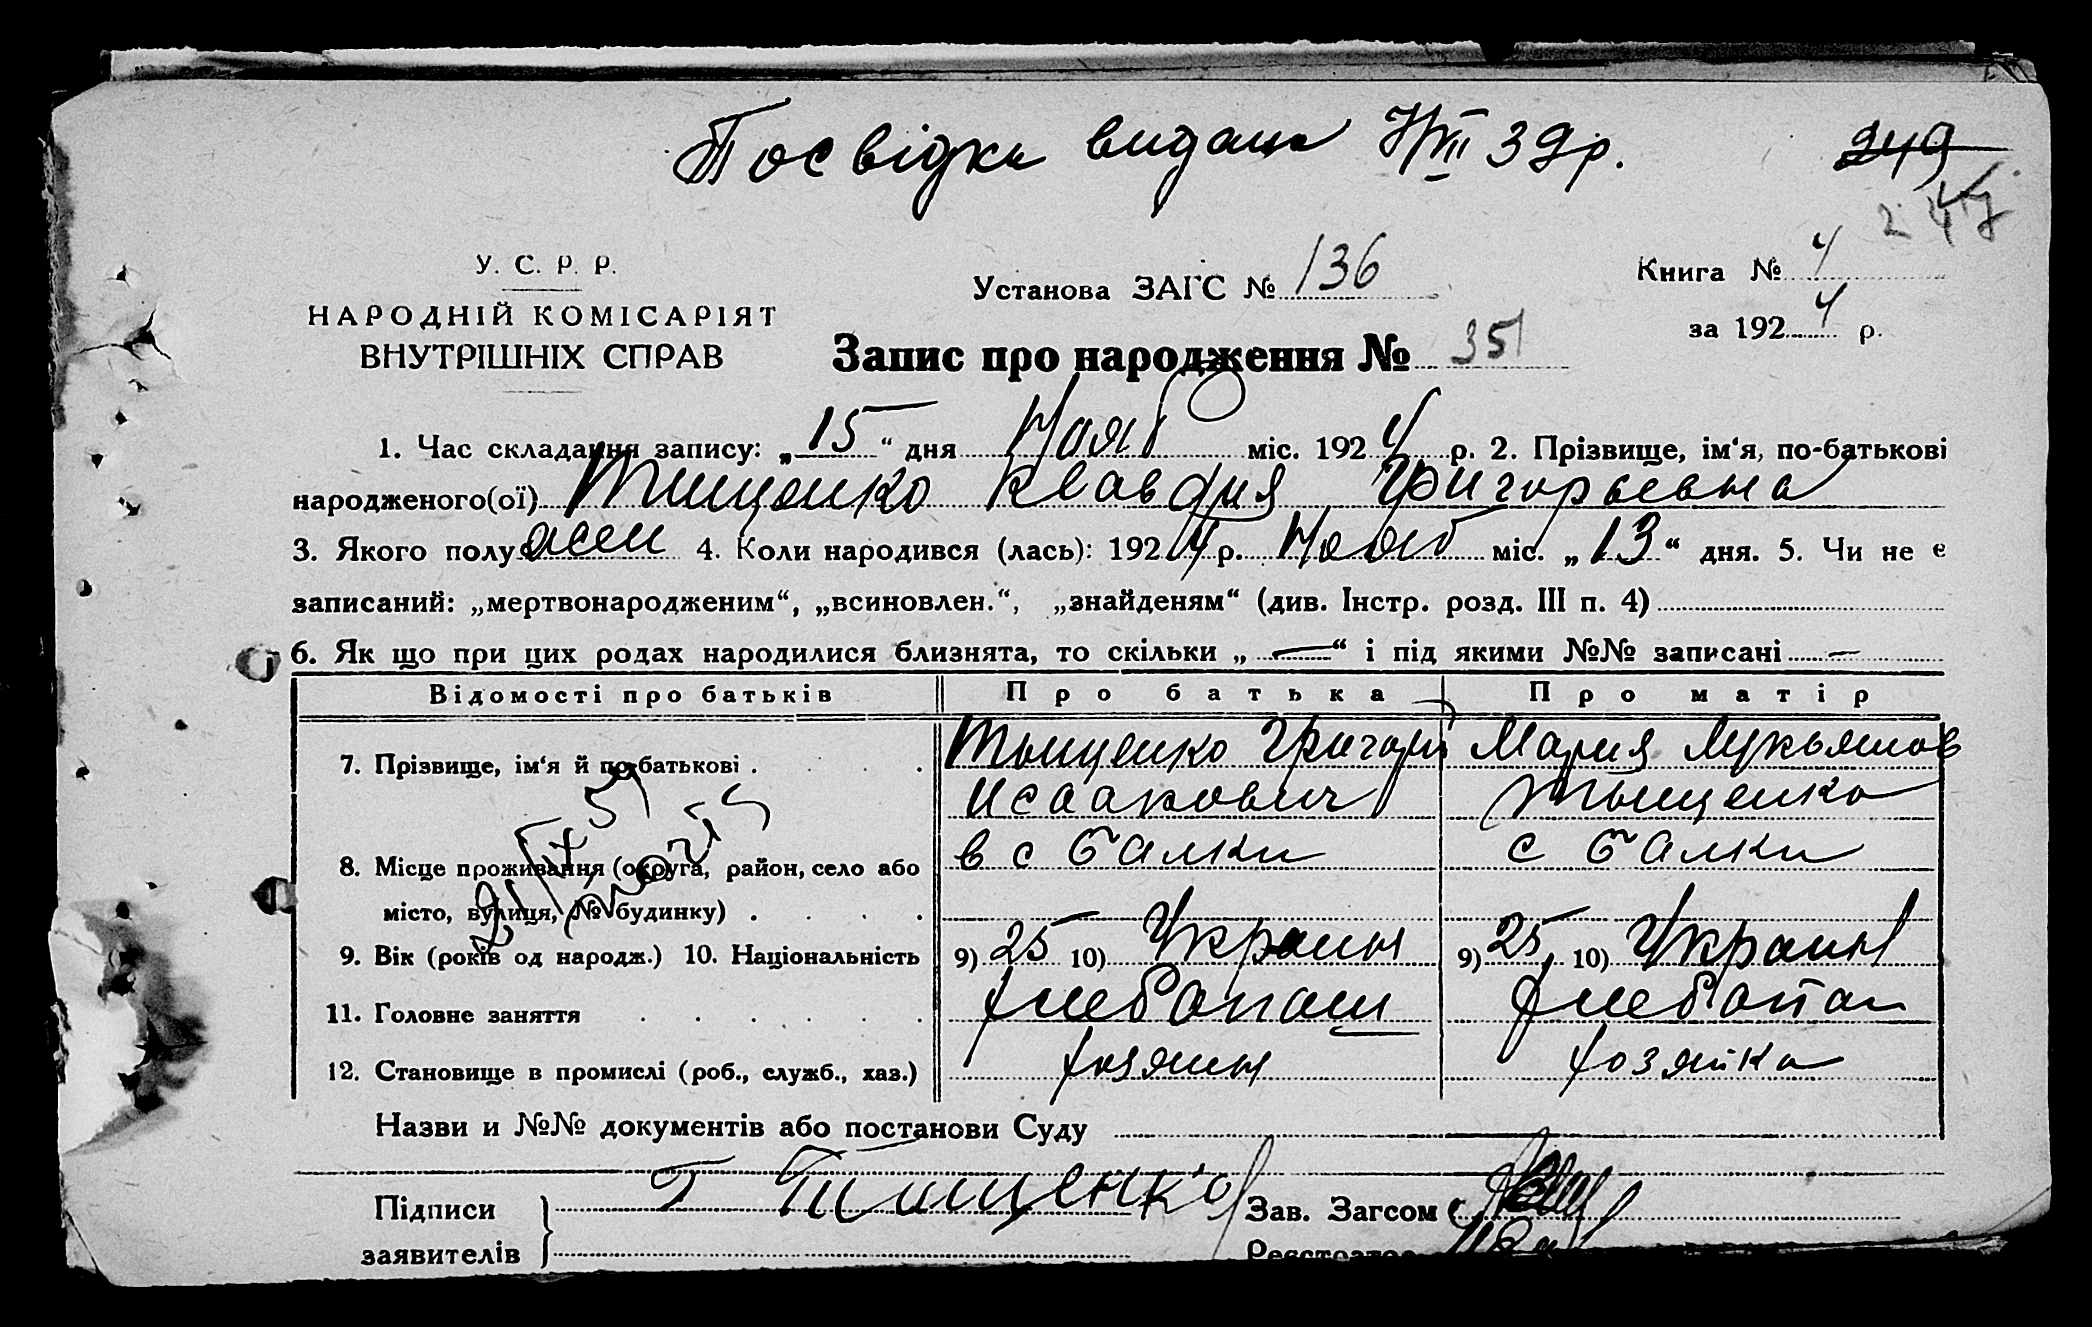 Посвідка видана 7/VIII 39р.
249
247
У. С. Р. Р.
НАРОДНІЙ КОМІСАРІЯТ
ВНУТРІШНІХ СПРАВ
Установа ЗАГС № 136
Книга № 4
за 1924 р.
Запис про народження № 351
1. Час складання запису: „15“ дня Нояб міс. 1924 р. 2. Прізвище, ім‘я, по-батькові
народженого(ої) Тищенко Клавдия Григорьевна
3. Якого полу жен 4. Коли народився (лась): 1924 р. Нояб міс. „13“ дня. 5. Чи не є
записаний: „мертвонародженим“, „всиновлен.“, „знайденям“ (див. Інстр. розд. III п. 4)
6. Як що при цих родах народилися близнята, то скільки „—“ і під якими №№ записані —
Відомості про батьків Про батька Про матір
7. Прізвище, ім‘я й по-батькові Тыщенко Григори Мария Лукьянов
Исаакович Тыщенко
8. Місце проживання (округа, район, село або в с Балки с Балки
місто, вулиця, № будинку)
9. Вік (років од народж.) 10. Національність 9) 25 10) Украин 9) 25 10) Украин
11. Головне заняття хлебопаш хлебопаш
12. Становище в промислі (роб., служб., хаз.) хозяин хозяйка
Назви и №№ документів або постанови Суду
Підписи Г Тищенко Зав. Загсом
заявителів Реєстратор